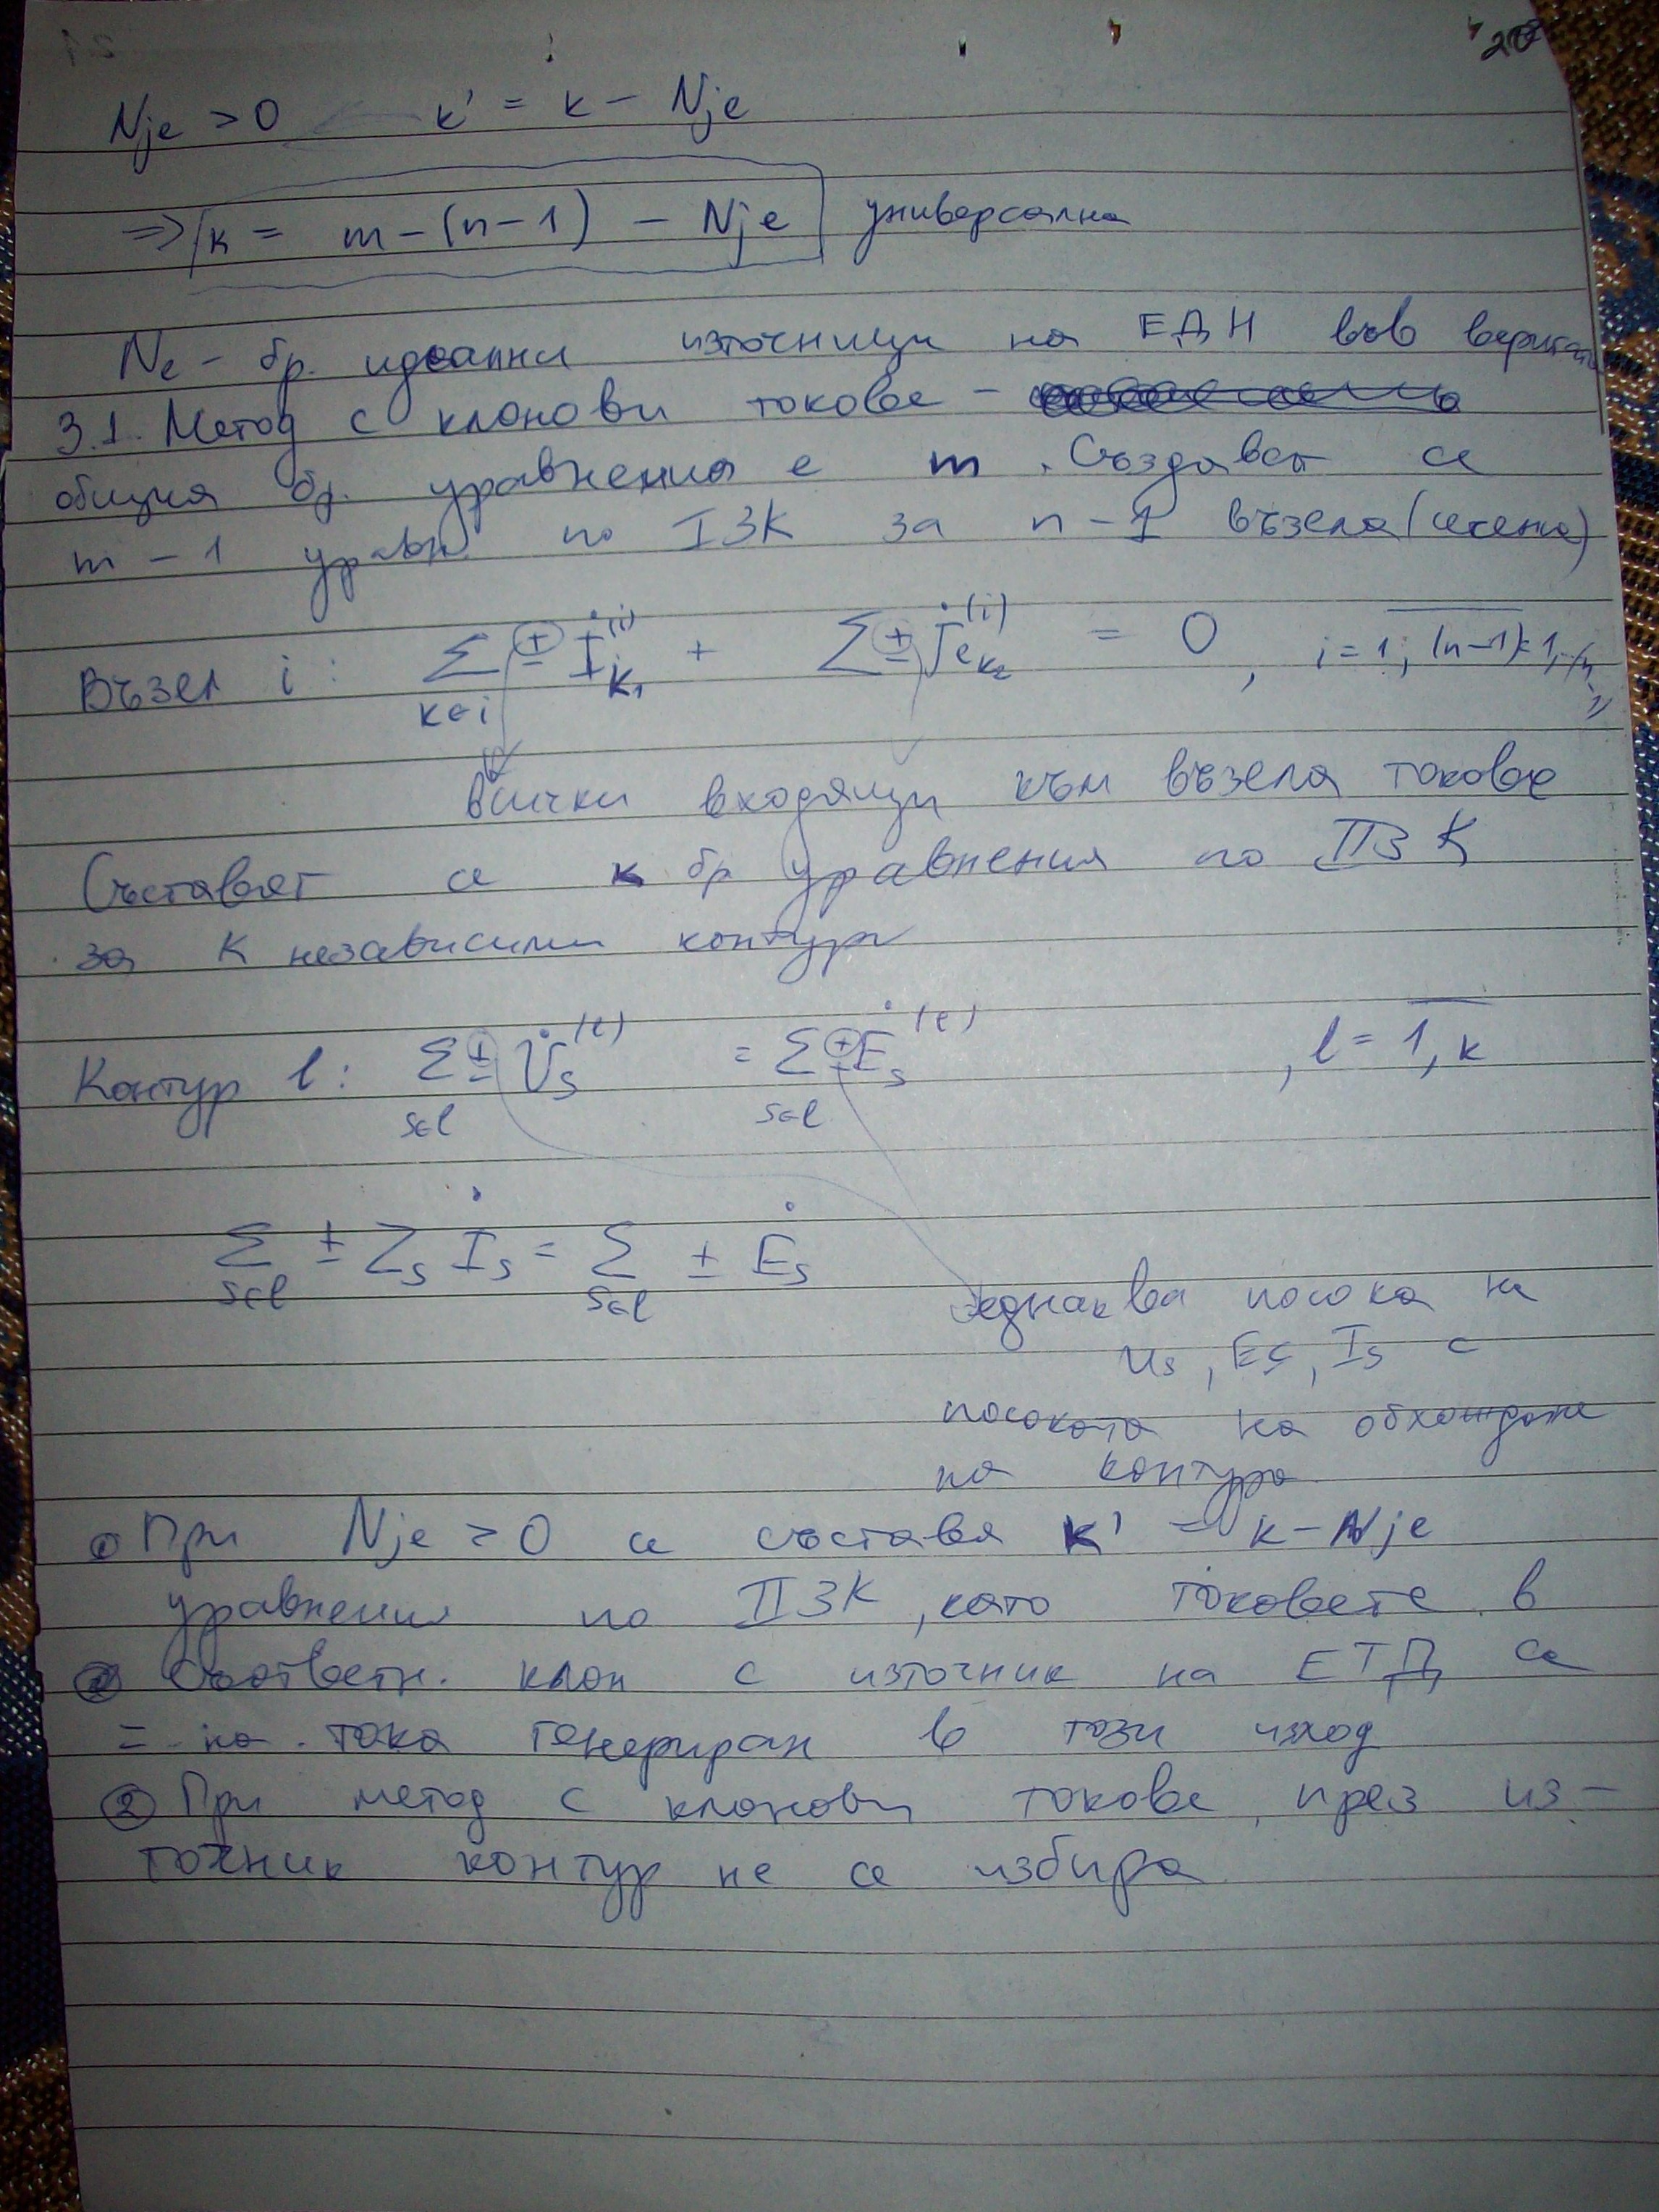 20
Nje > 0 k' = k - Nje
=> k = m - (n-1) - Nje универсална
Ne - бр. идеални източници на ЕДН във веригата
3.1. Метод с клонови токове -
общия бр. уравнения е m. Създават се
m - 1 уравн. по I ЗК за n - 1 възела (сечена)
Възел i: Σ ± İ_K₁^(i) + Σ ± J̇e_K₂^(i) = 0, i = 1; (n-1) = 1, ..., (n-1)
k∈i
всички входящи към възела токове
Съставят се k бр уравнения по II З К
за К независими контури
Контур l: Σ ± U̇s^(l) = Σ ± Ės^(l) , l = 1, k
s∈l s∈l
Σ ± Zs İs = Σ ± Ės
s∈l s∈l
еднаква посока на
Us, Es, Is с
посоката на обхождане
на контура
① При Nje > 0 се съставя k' = k - Nje
уравнения по II ЗК, като токовете в
съответн. клон с източник на ЕТД са
= на тока генериран в този изход
② При метод с клонови токове, през из-
точник контур не се избира